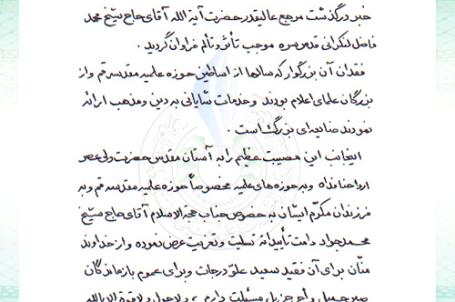 خبر درگذشت مرجع عالیقدر حضرت آیة الله آقای حاج شیخ محمد
فاضل لنکرانی قدس سره موجب تأثر و تألم فراوان گردید .
فقدان آن بزرگوار که سالها از اساطین حوزه علمیه مقدسه قم و از
بزرگان علمای اعلام بودند و خدمات شایانی به دین و مذهب ارائه
نمودند ضایعه‌ای بزرگ است .
اینجانب این مصیبت عظیم را به آستان مقدس حضرت ولی عصر
ارواحنا فداه و به حوزه های علمیه مخصوصاً حوزه علمیه مقدسه قم و به
فرزندان مکرم ایشان به خصوص جناب حجة الاسلام آقای حاج شیخ
محمد جواد دامت تأییداته تسلیت و تعزیت عرض نموده و از خداوند
منّان برای آن فقید سعید علوّ درجات و برای عموم بازماندگان
صبر جمیل و اجر جزیل مسئلت دارم ، ولا حول ولا قوة الا بالله